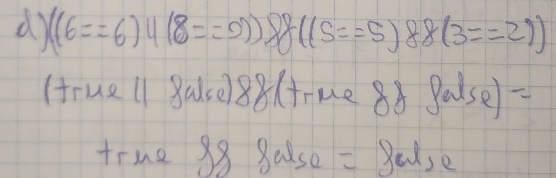 d)((6==6)||(8==0))&&((5==5)&&(3==2))
(true || false)&&(true && false) =
true && false = false